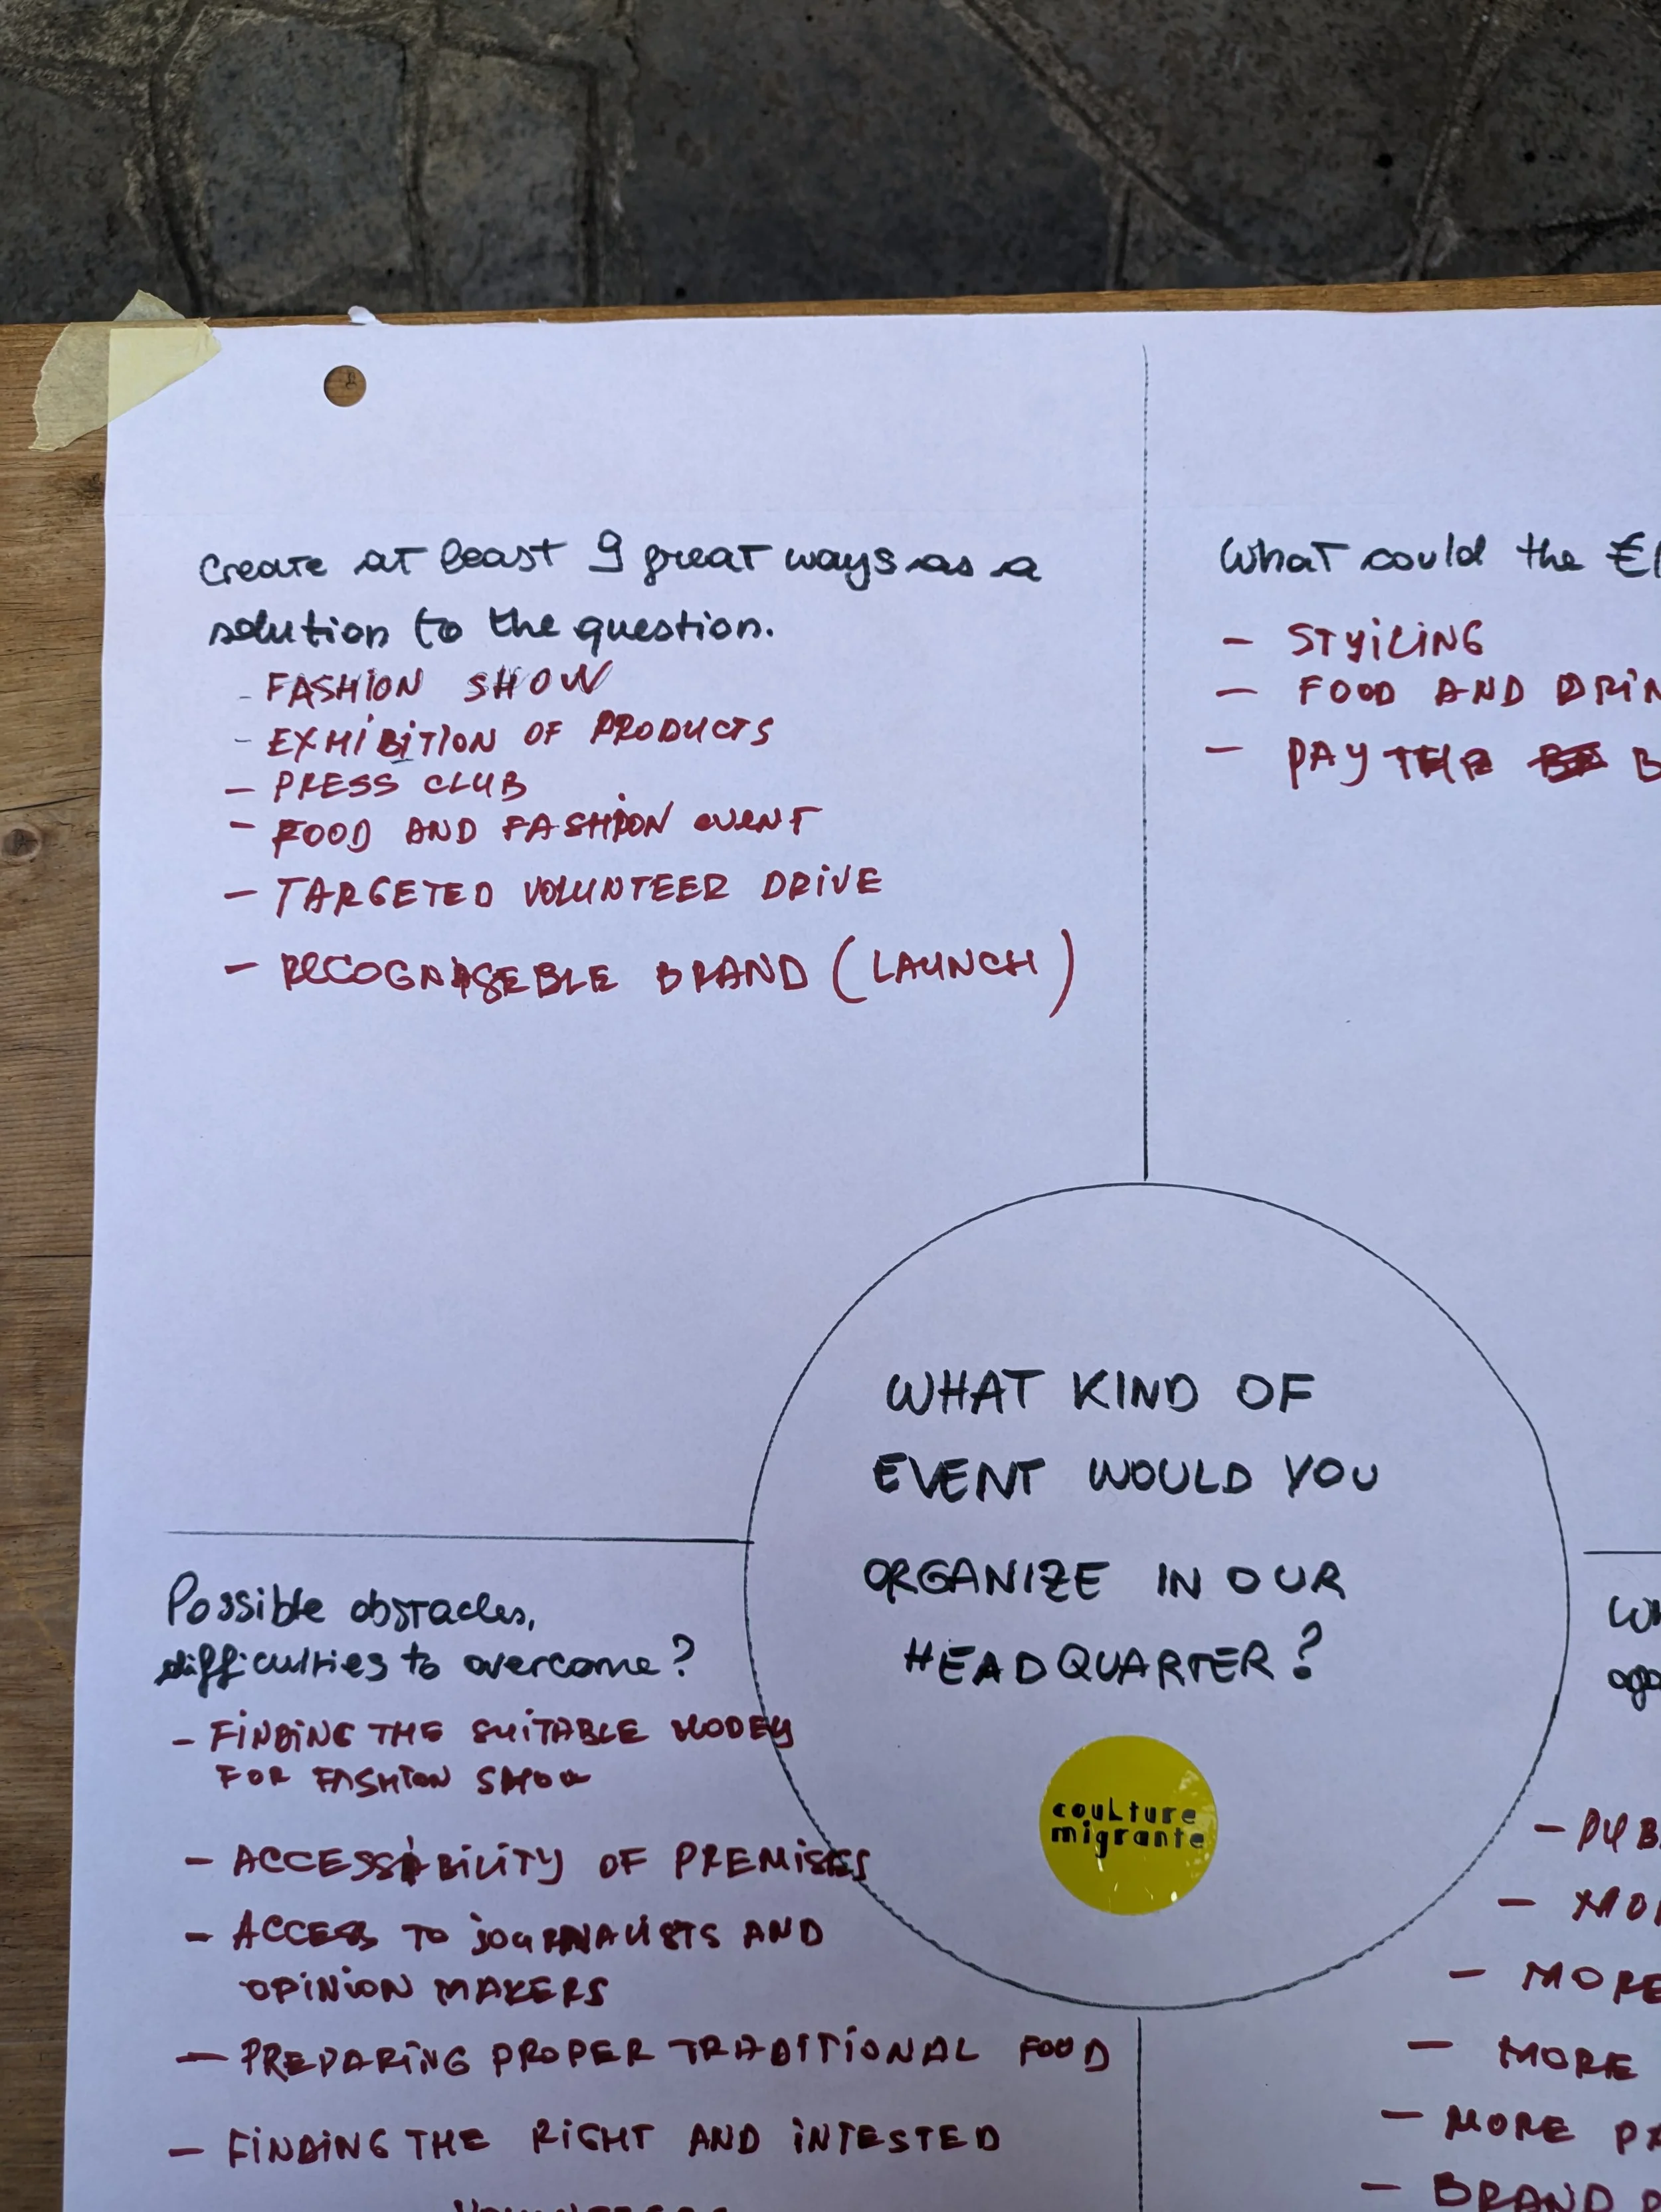 Create at least 9 great ways as a
solution to the question.
- FASHION SHOW
- EXHIBITION OF PRODUCTS
- PRESS CLUB
- FOOD AND FASHION EVENT
- TARGETED VOLUNTEER DRIVE
- RECOGNISEBLE BRAND (LAUNCH)
What could the
- STYILING
- FOOD AND
- PAY
WHAT KIND OF
EVENT WOULD YOU
ORGANIZE IN OUR
HEADQUARTER?
coulture
migrante
Possible obstacles,
difficulties to overcome?
- FINDING THE SUITABLE
FOR FASHION SHOW
- ACCESSIBILITY OF PREMISES
- ACCESS TO JOURNALISTS AND
OPINION MAKERS
- PREPARING PROPER TRADITIONAL FOOD
- FINDING THE RIGHT AND INTESTED
- MORE
- MORE
- MORE
- BRAND